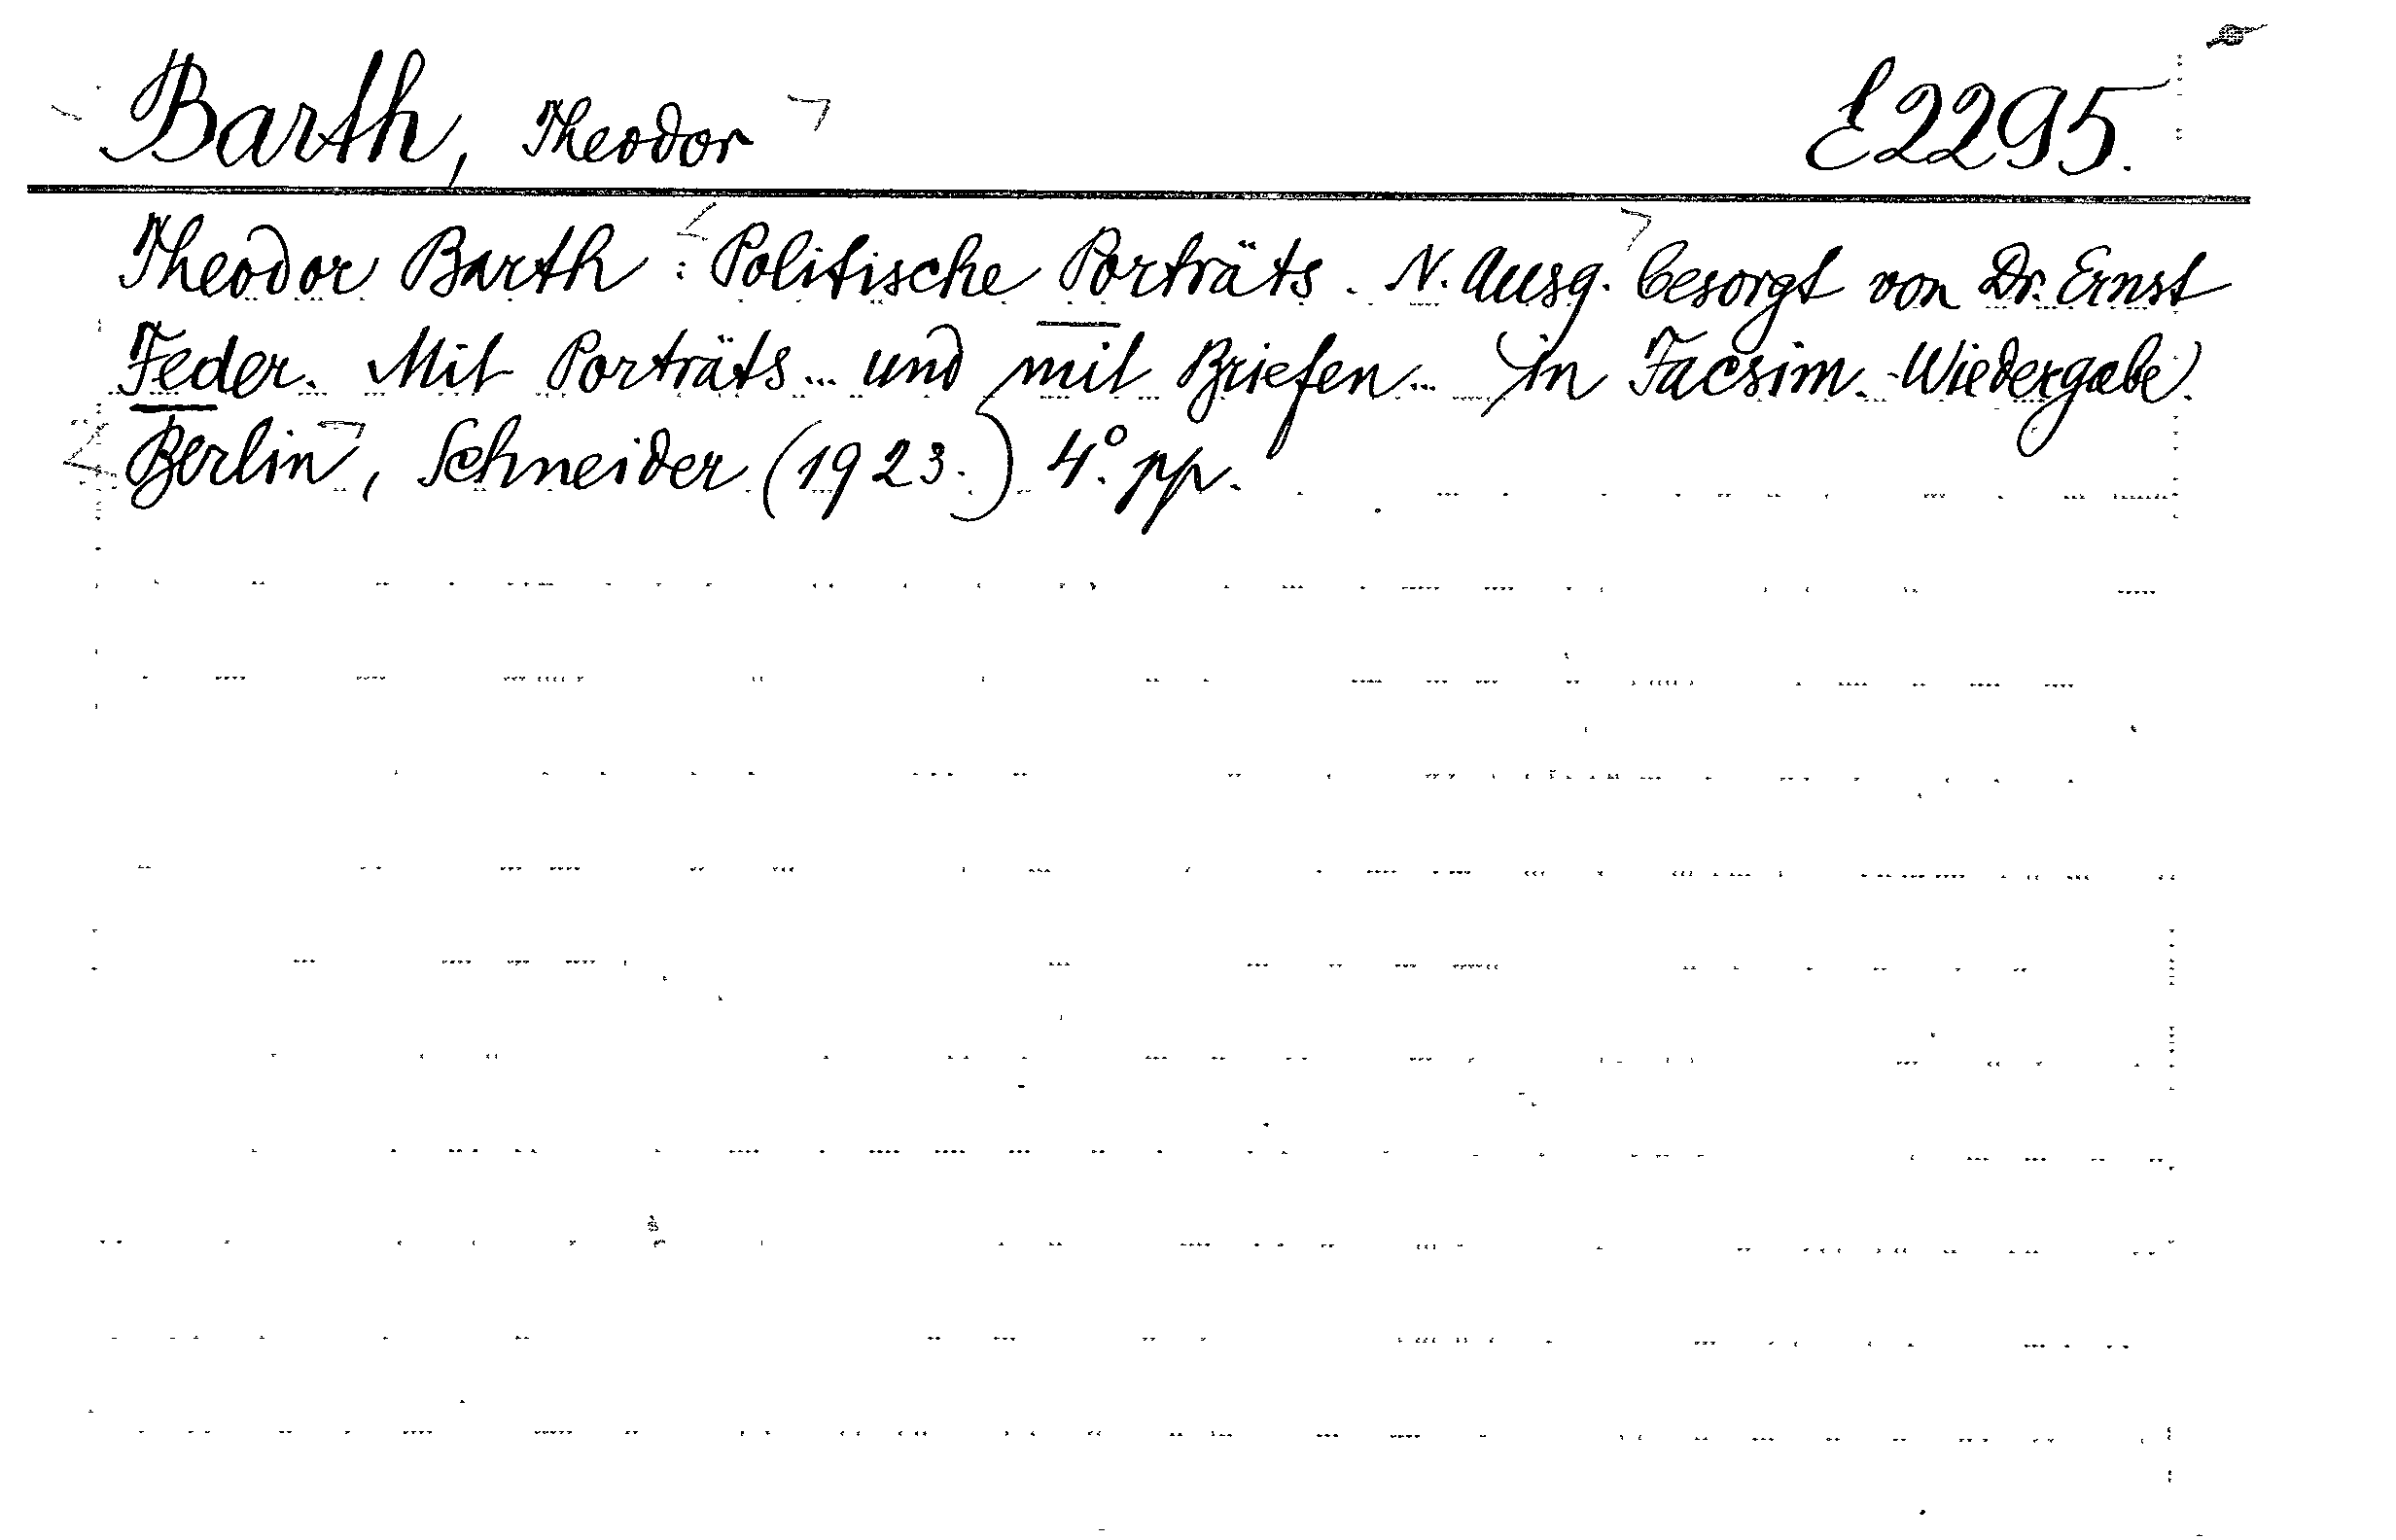 Barth, Theodor E2295.
Theodor Barth : Politische Porträts. N. Ausg. besorgt von Dr. Ernst
Feder. Mit Porträts... und mit Briefen... in Facsim.-Wiedergabe.
Berlin, Schneider (1923.) 4°. pp.